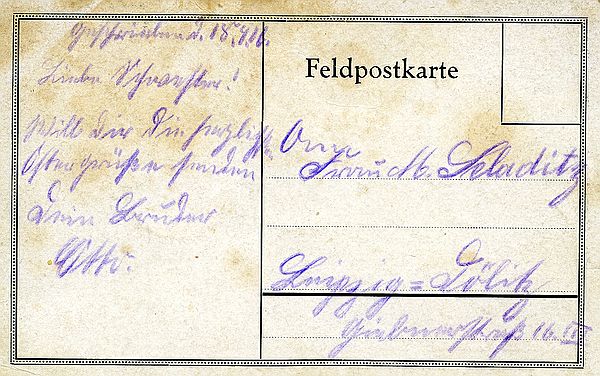 Geschrieben d. 18.4.16.
Liebe Schwester!
Will dir die herzlichsten
Ostergrüße senden
Dein Bruder
Otto.
Feldpostkarte
An
Frau M. Seladitz
Leipzig=Dölitz
16. II